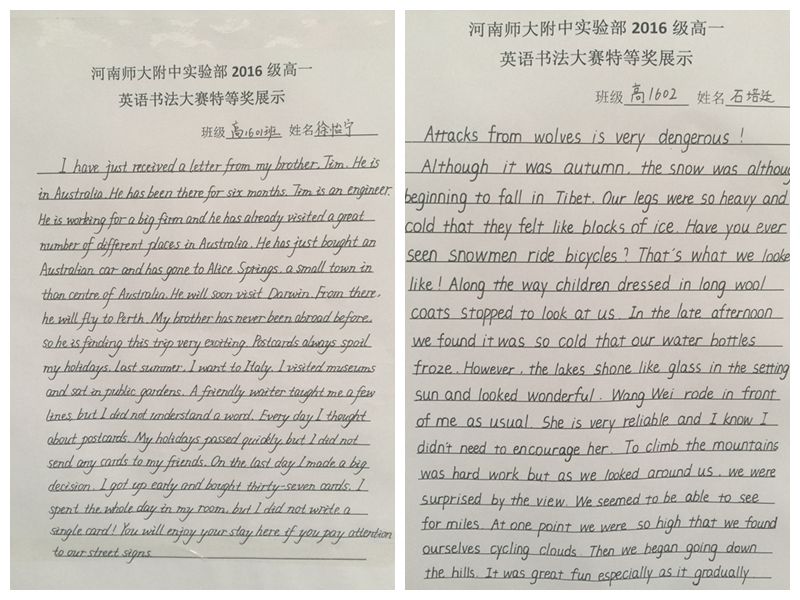 河南师大附中实验部 2016 级高一
英语书法大赛特等奖展示
班级 高1601班 姓名 徐怡宁
I have just received a letter from my brother, Tim. He is
in Australia. He has been there for six months. Tim is an engineer.
He is working for a big firm and he has already visited a great
number of different places in Australia. He has just bought an
Australian car and has gone to Alice Springs, a small town in
than centre of Australia. He will soon visit Darwin. From there,
he will fly to Perth. My brother has never been abroad before,
so he is finding this trip very exciting. Postcards always spoil
my holidays. Last summer, I want to Italy. I visited museums
and sat in public gardens. A friendly waiter taught me a few
lines, but I did not understand a word. Every day I thought
about postcards. My holidays passed quickly, but I did not
send any cards to my friends. On the last day I made a big
decision. I got up early and bought thirty-seven cards. I
spent the whole day in my room, but I did not write a
single card! You will enjoy your stay here if you pay attention
to our street signs
河南师大附中实验部 2016 级高一
英语书法大赛特等奖展示
班级 高1602 姓名 石培廷
Attacks from wolves is very dengerous!
Although it was autumn, the snow was althoug
beginning to fall in Tibet. Our legs were so heavy and
cold that they felt like blocks of ice. Have you ever
seen snowmen ride bicycles? That's what we looke
like! Along the way children dressed in long wool
coats stopped to look at us. In the late afternoon
we found it was so cold that our water bottles
froze. However, the lakes shone like glass in the setting
sun and looked wonderful. Wang Wei rode in front
of me as usual. She is very reliable and I know I
didn't need to encourage her. To climb the mountains
was hard work but as we looked around us, we were
surprised by the view. We seemed to be able to see
for miles. At one point we were so high that we found
ourselves cycling clouds. Then we began going down
the hills. It was great fun especially as it gradually